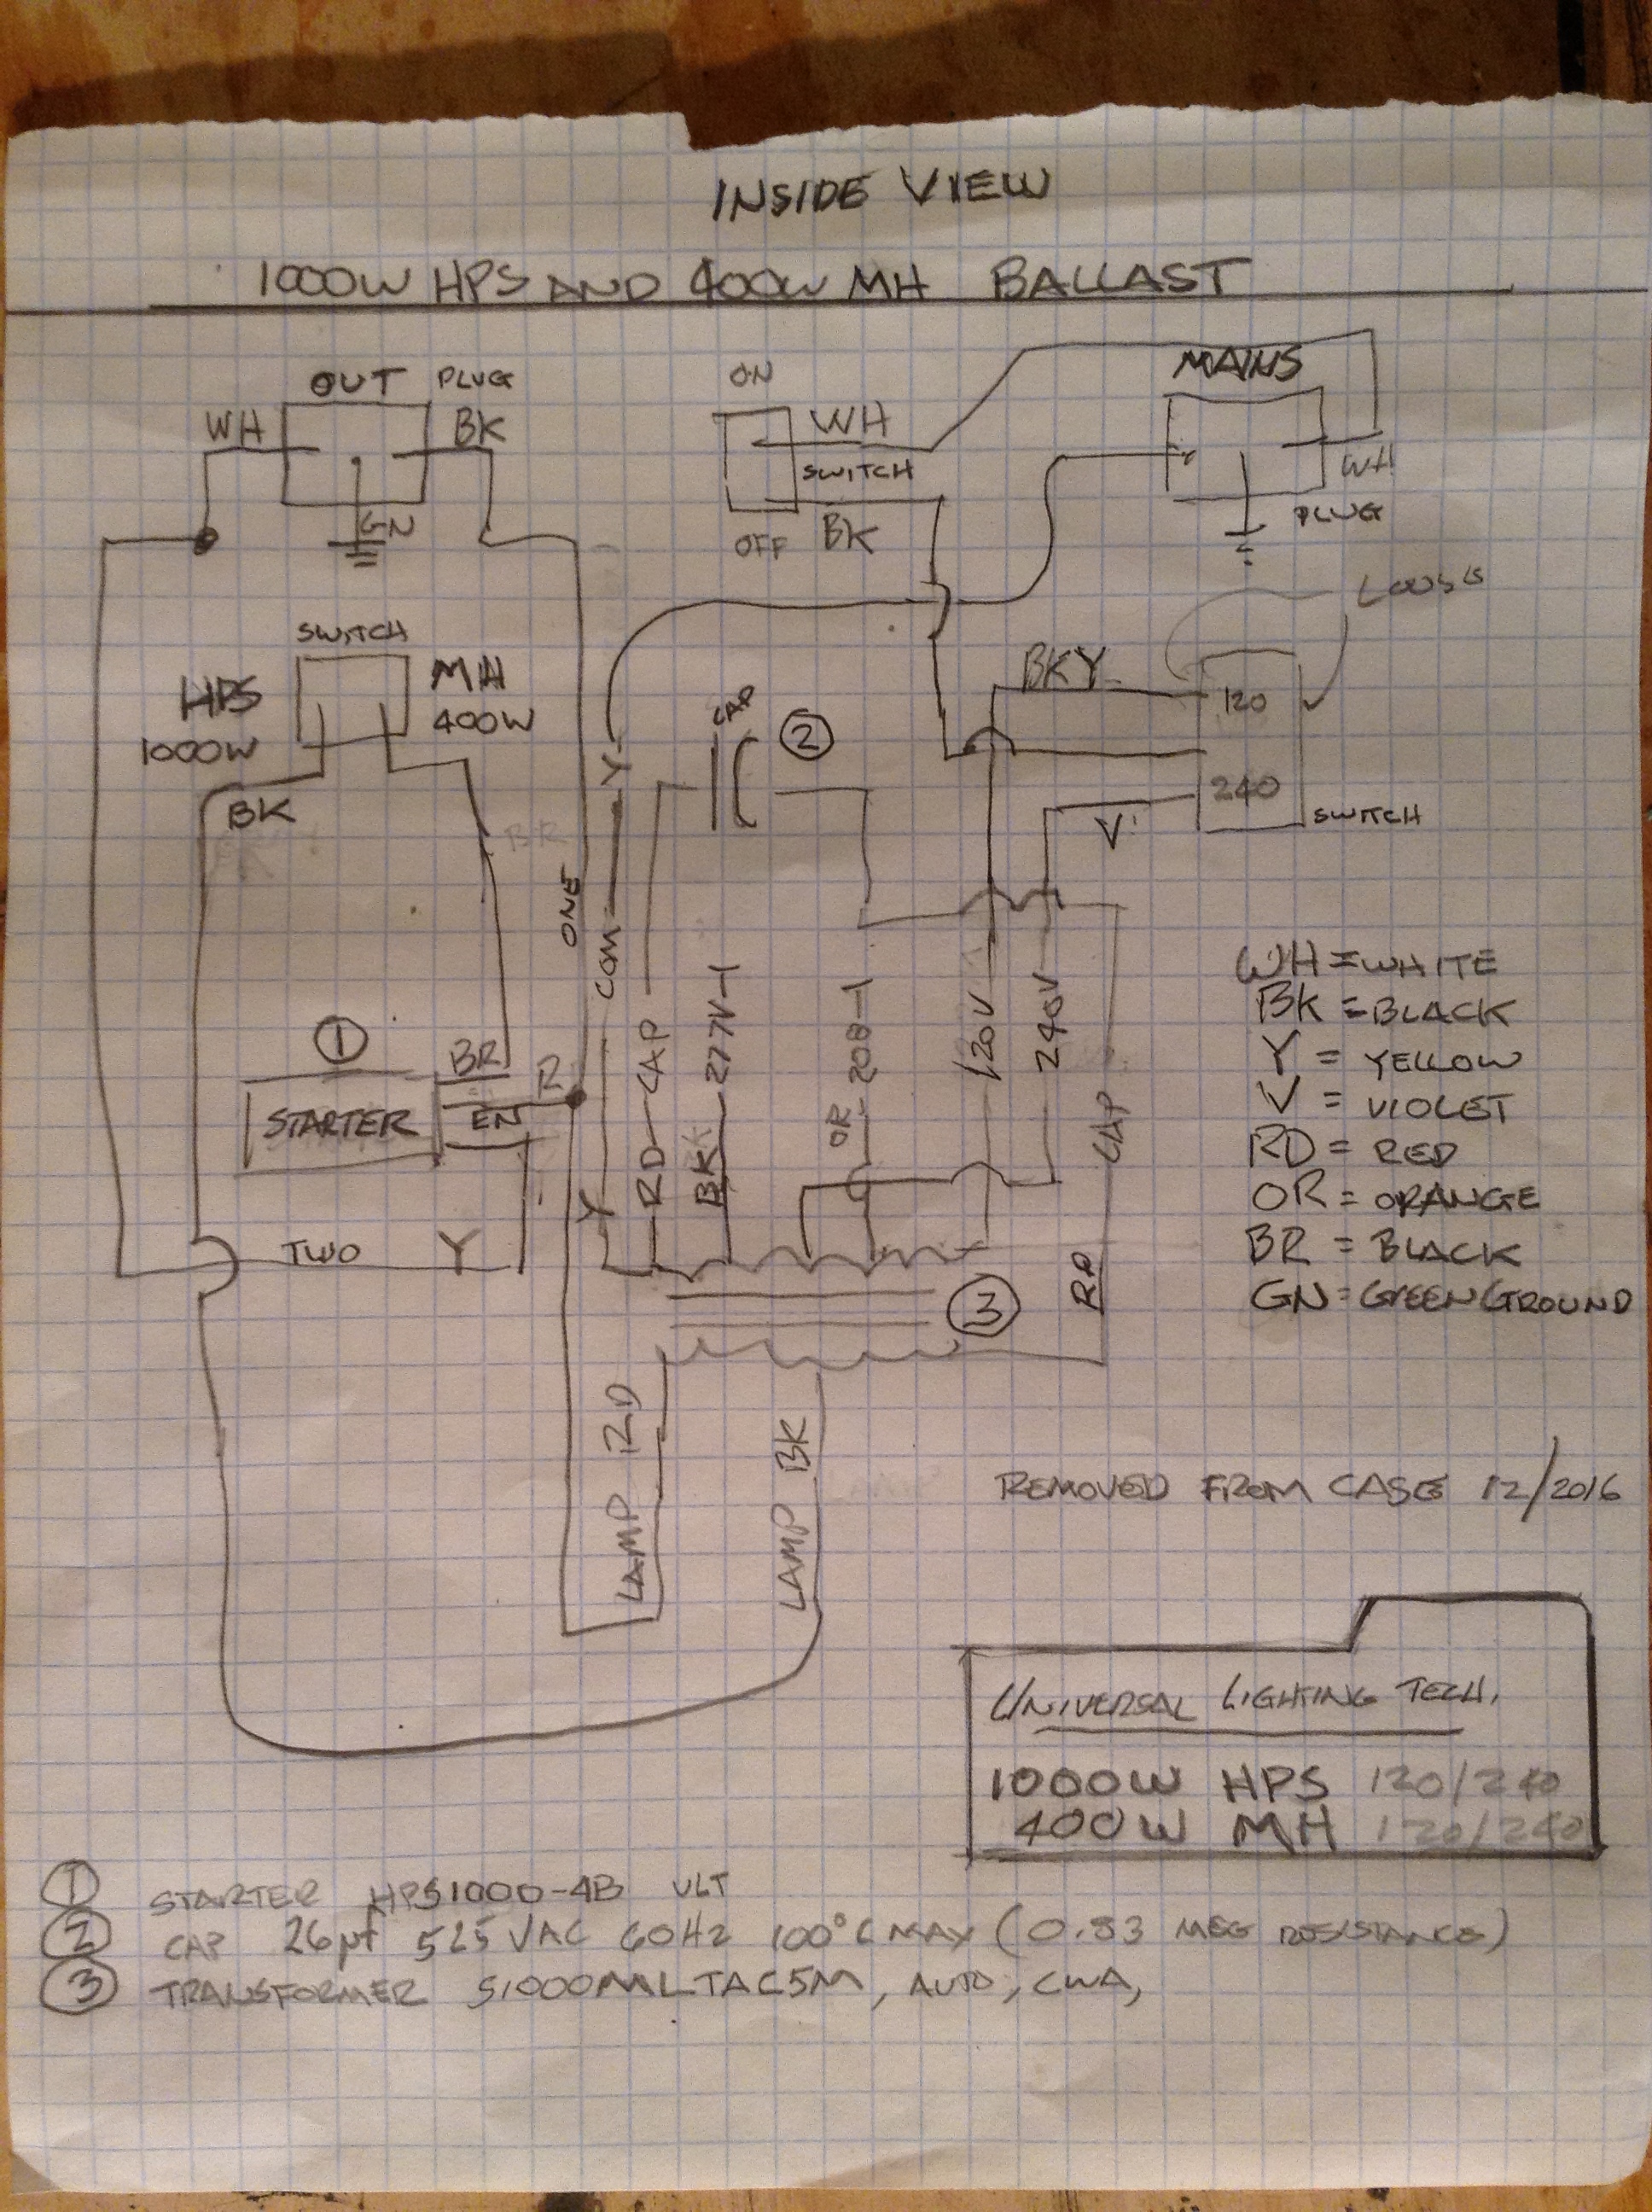 INSIDE VIEW
1000W HPS AND 400W MH BALLAST
OUT PLUG
WH
BK
GN
ON
WH
SWITCH
OFF BK
MAINS
WH
PLUG
SWITCH
HPS
1000W
MH
400W
BK
BR
CAP
2
Y
BKY
120
240
V
SWITCH
ONE
COM
Y
RD CAP
BK 277V-1
OR 208-1
120V
240V
CAP
1
STARTER
BR
R
EN
TWO Y
3
LAMP RD
LAMP BK
WH = WHITE
BK = BLACK
Y = YELLOW
V = VIOLET
RD = RED
OR = ORANGE
BR = BLACK
GN = GREEN GROUND
REMOVED FROM CASE 12/2016
UNIVERSAL LIGHTING TECH.
1000W HPS 120/240
400W MH 120/240
1 STARTER HPS1000-4B ULT
2 CAP 26µf 525 VAC 60Hz 100°C MAX (0.83 MEG RESISTANCE)
3 TRANSFORMER S1000MLTAC5M, AUTO, CWA,